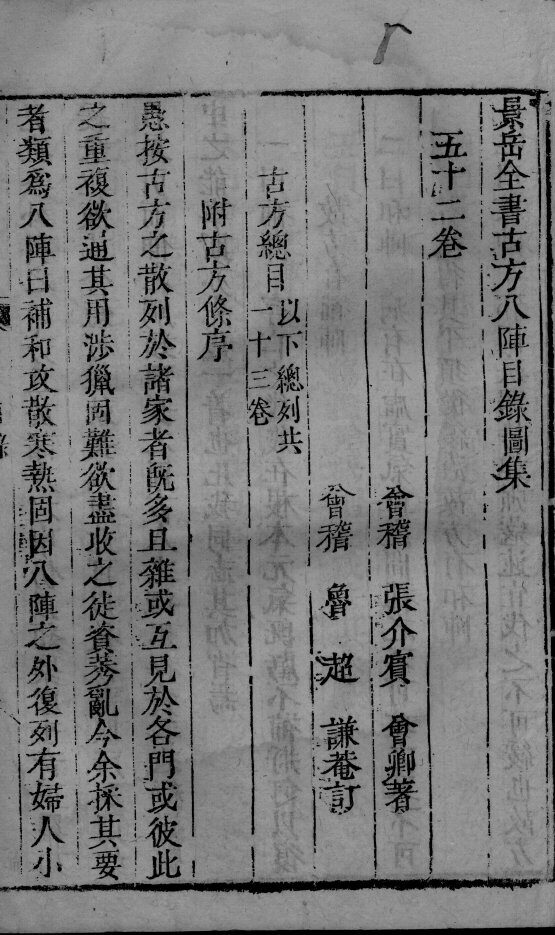 景岳全書古方八陣目錄圖集
五十二卷
會稽 張介賓 會卿著
會稽 魯 超 謙菴訂
古方總目 以下總列共一十三卷
附古方條序
愚按古方之散列於諸家者旣多且雜或互見於各門或彼此
之重複欲通其用涉獵固難欲盡收之徒資莠亂今余採其要
者類爲八陣曰補和攻散寒熱固因八陣之外復列有婦人小